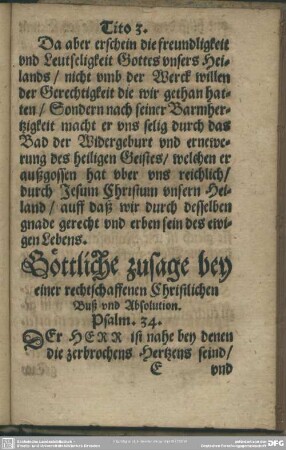 Tito 3.
Da aber erschein die freundligkeit
vnd Leutseligkeit Gottes vnsers Hei-
lands / nicht vmb der Werck willen
der Gerechtigkeit die wir gethan hat-
ten / Sondern nach seiner Barmher-
tzigkeit macht er vns selig durch das
Bad der Widergeburt vnd ernewe-
rung des heiligen Geistes / welchen er
außgossen hat vber vns reichlich /
durch Jesum Christum vnsern Hei-
land / auff daß wir durch desselben
gnade gerecht vnd erben sein des ewi-
gen Lebens.
Göttliche zusage bey
einer rechtschaffenen Christlichen
Buß vnd Absolution.
Psalm. 34.
DEr HERR ist nahe bey denen
die zerbrochens Hertzens seind /
E vnd